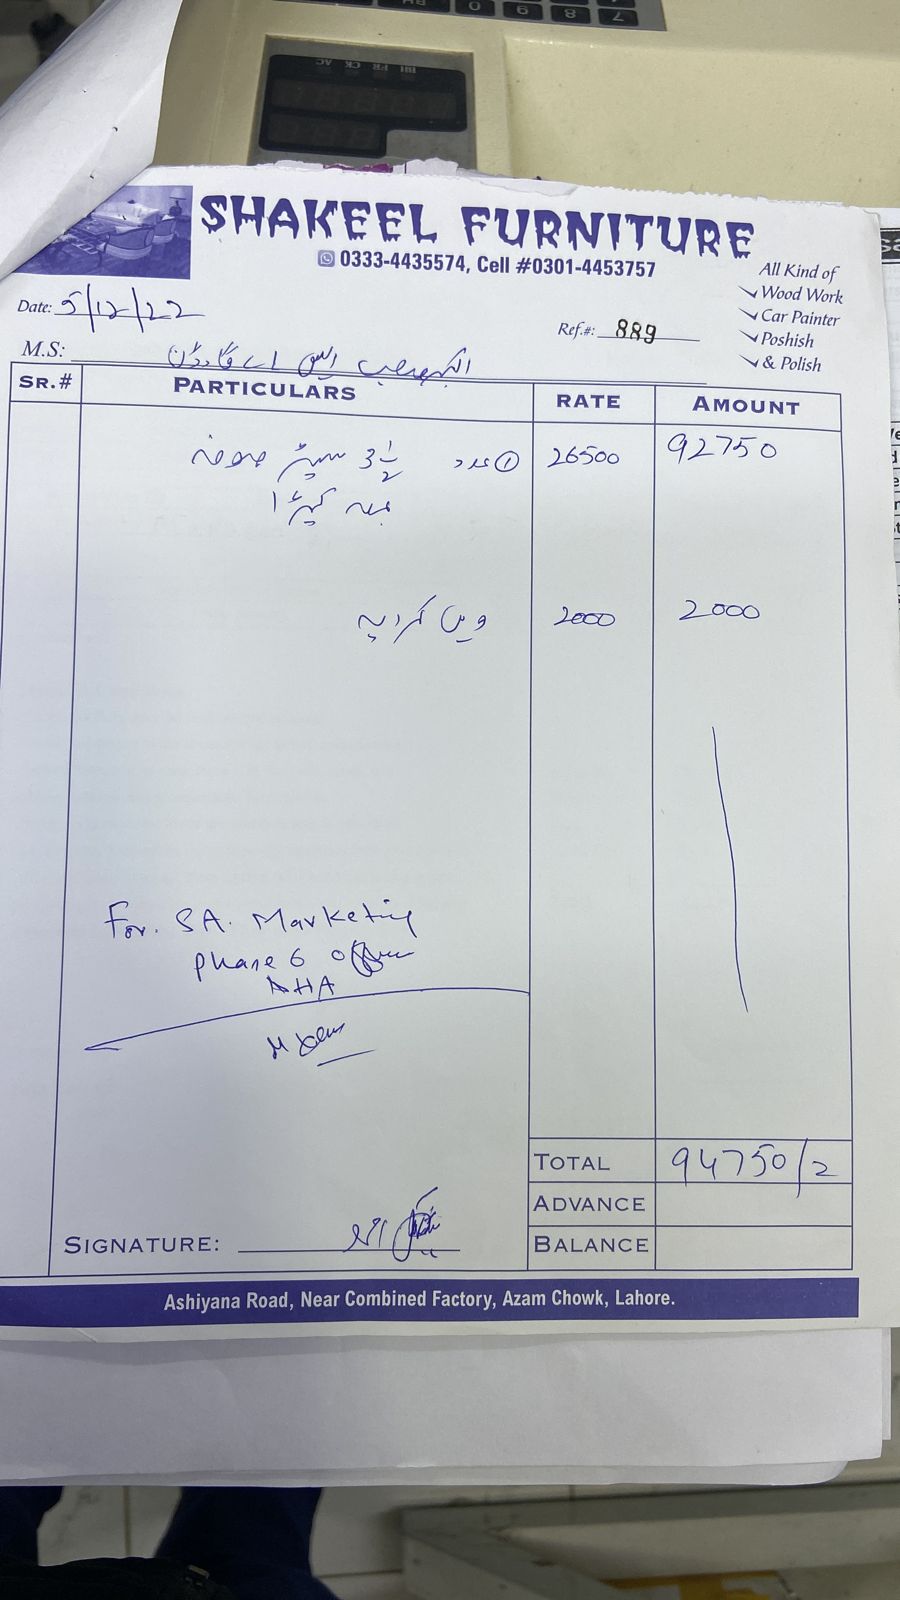 SHAKEEL FURNITURE
0333-4435574, Cell #0301-4453757
All Kind of
Wood Work
Car Painter
Poshish
& Polish
Date: 5/12/22
Ref.#: 889
M.S: ایس اے گارڈن
SR.# PARTICULARS RATE AMOUNT
① عدد 3½ سیٹر صوفہ 26500 92750
بمعہ کپڑا
وین کرایہ 2000 2000
For. SA. Marketing
phase 6 office
DHA
TOTAL 94750/2
ADVANCE
SIGNATURE:
BALANCE
Ashiyana Road, Near Combined Factory, Azam Chowk, Lahore.